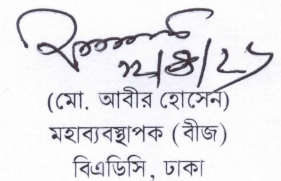 (মো. আবীর হোসেন)
মহাব্যবস্থাপক (বীজ)
বিএডিসি, ঢাকা